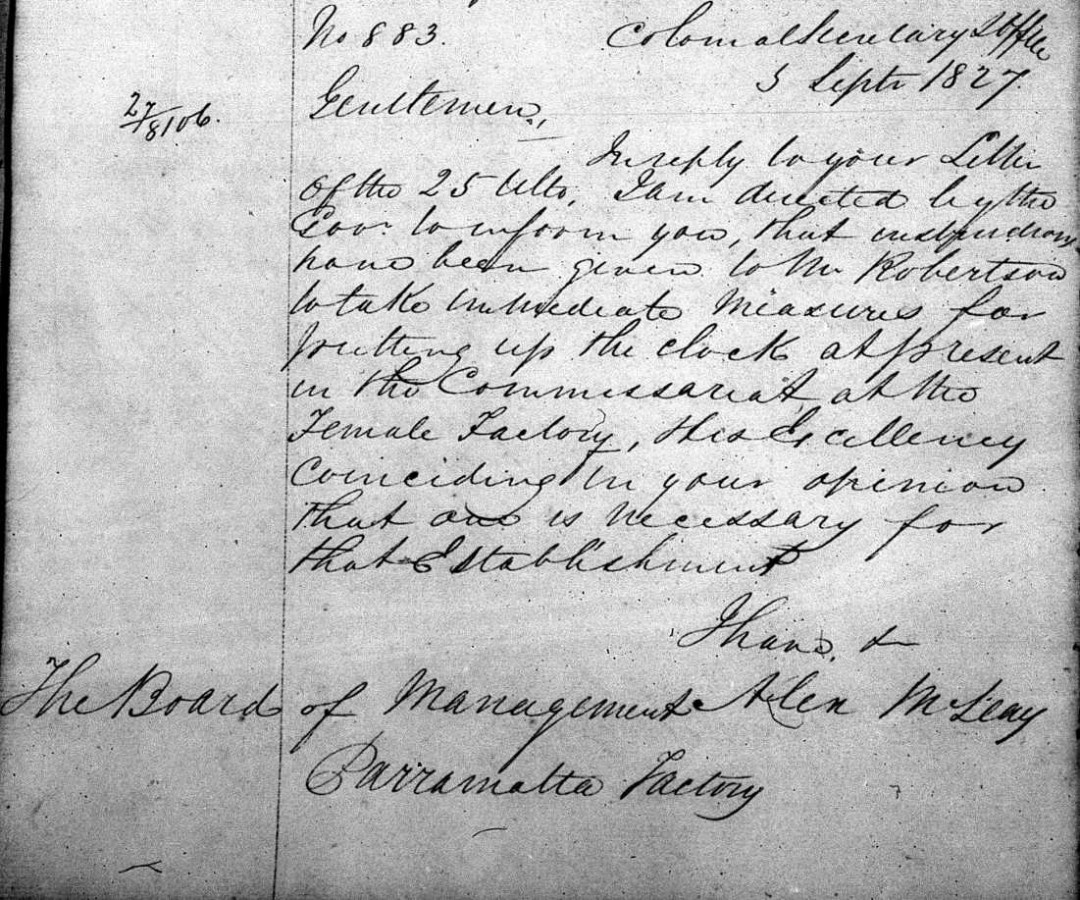 No 883. Colonial Secretarys Office
5 Septr 1827.
27/8106.
Gentlemen,
In reply to your Letter
of the 25 Ulto, I am directed by the
Govr. to inform you, that instructions
have been given to Mr Robertson
to take immediate Measures for
putting up the clock at present
in the Commissariat at the
Female Factory, His Excellency
Coinciding in your opinion
that one is necessary for
that Establishment
I have. &
The Board of Management Alex McLeay
Parramatta Factory